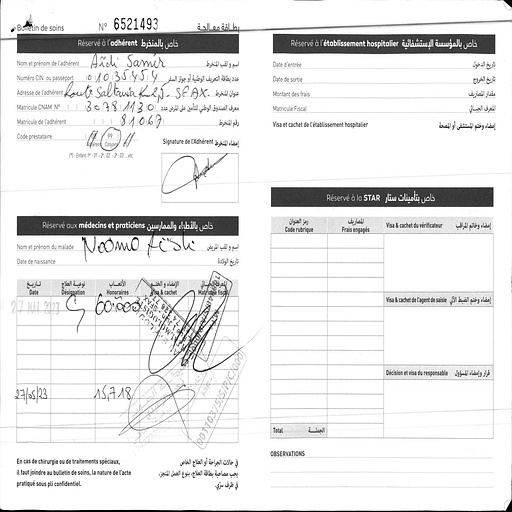 Bulletin de soins N° 6521493 بطاقة معالجة
Réservé à l'adhérent خاص بالمنخرط
Nom et prénom de l'adhérent Aïdi Samir اسم و لقب المنخرط
Numéro CIN ou passeport 01035454 عدد بطاقة التعريف الوطنية أو جواز السفر
Adresse de l'adhérent Route Saltania Km 2,5 SFAX عنوان المنخرط
Matricule CNAM N°
Matricule de l'adhérent 81067 رقم المنخرط
Code prestataire 99
Adhérent Conjoint
Signature de l'Adhérent إمضاء المنخرط
(*) : Enfant N° : 01 - 02 - 02 - 03 ... etc
Réservé aux médecins et praticiens خاص بالأطباء والممارسين
Nom et prénom du malade اسم و لقب المريض
Date de naissance تاريخ الولادة
تاريخ نوعية العلاج الأتعاب الإمضاء و الختم
Date Désignation Honoraires Visa & cachet Matricule fiscal
27 MAI 2023 60.000
27/05/23 15,718
En cas de chirurgie ou de traitements spéciaux,
il faut joindre au bulletin de soins, la nature de l'acte
pratiqué sous pli confidentiel.
في حالات الجراحة أو العلاج الخاص
يجب مصاحبة بطاقة العلاج، بنوع العمل المنجز،
في ظرف سري.
Réservé à l'établissement hospitalier خاص بالمؤسسة الإستشفائية
Date d'entrée تاريخ الدخول
Date de sortie تاريخ الخروج
Montant des frais مقدار المصاريف
Matricule Fiscal المعرف الجبائي
Visa et cachet de l'établissement hospitalier إمضاء وختم المستشفى أو المصحة
Réservé à la STAR خاص بتأمينات ستار
رمز العنوان المصاريف
Code rubrique Frais engagés
Visa & cachet du vérificateur إمضاء وخاتم المراقب
Visa & cachet de l'agent de saisie إمضاء وختم الضبط الآلي
Décision et visa du responsable قرار وإمضاء المسؤول
Total الجملة
OBSERVATIONS